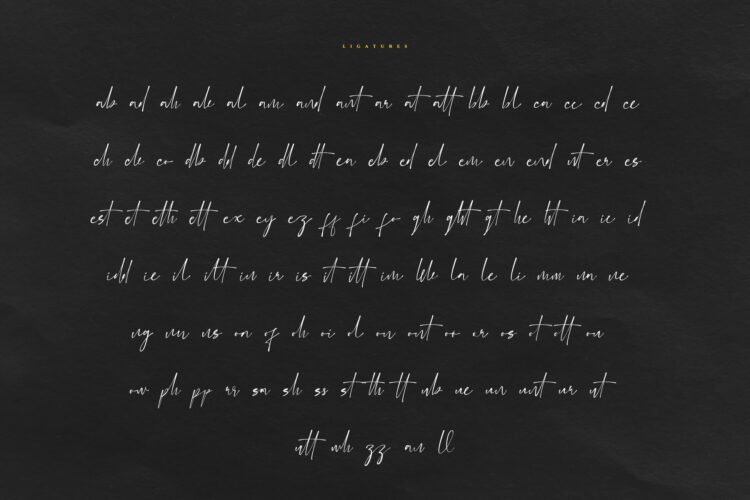 LIGATURES
ab ad ah ak al am and ant ar at att bb bl ca cc cd ce
ch ck co db dd de dl dt ea eb ed el em en end nt er es
est et eth ett ex ey ez ff fi fo gh ght gt he ht ia ic id
idd ie il ilt in ir is it itt im kk la le li mm na ne
ng nn ns oa of oh oi ol on ont oo or os ot ott ou
ow ph pp rr sa sh ss st th tt ub ue un unt ur ut
utt wh zz an ll